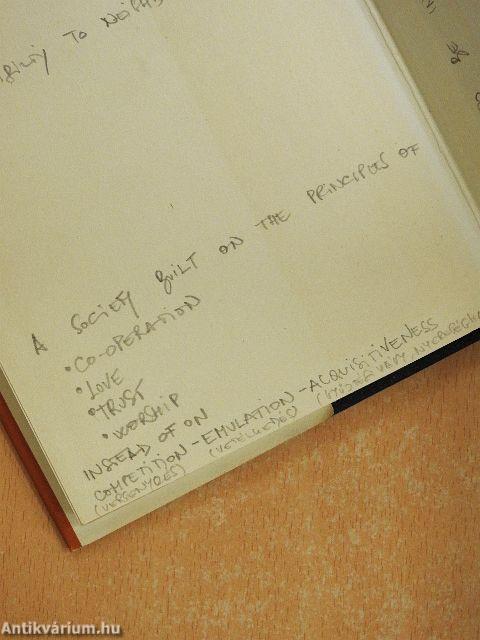 TO
A SOCIETY BUILT ON THE PRINCIPLES OF
• CO-OPERATION
• LOVE
• TRUST
• WORSHIP
INSTEAD OF ON
COMPETITION - EMULATION - ACQUISITIVENESS
(VERSENYZÉS) (VETÉLKEDÉS)
Antikvárium.hu